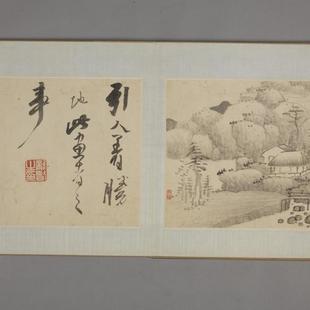 引人着勝
地此畫者之
事